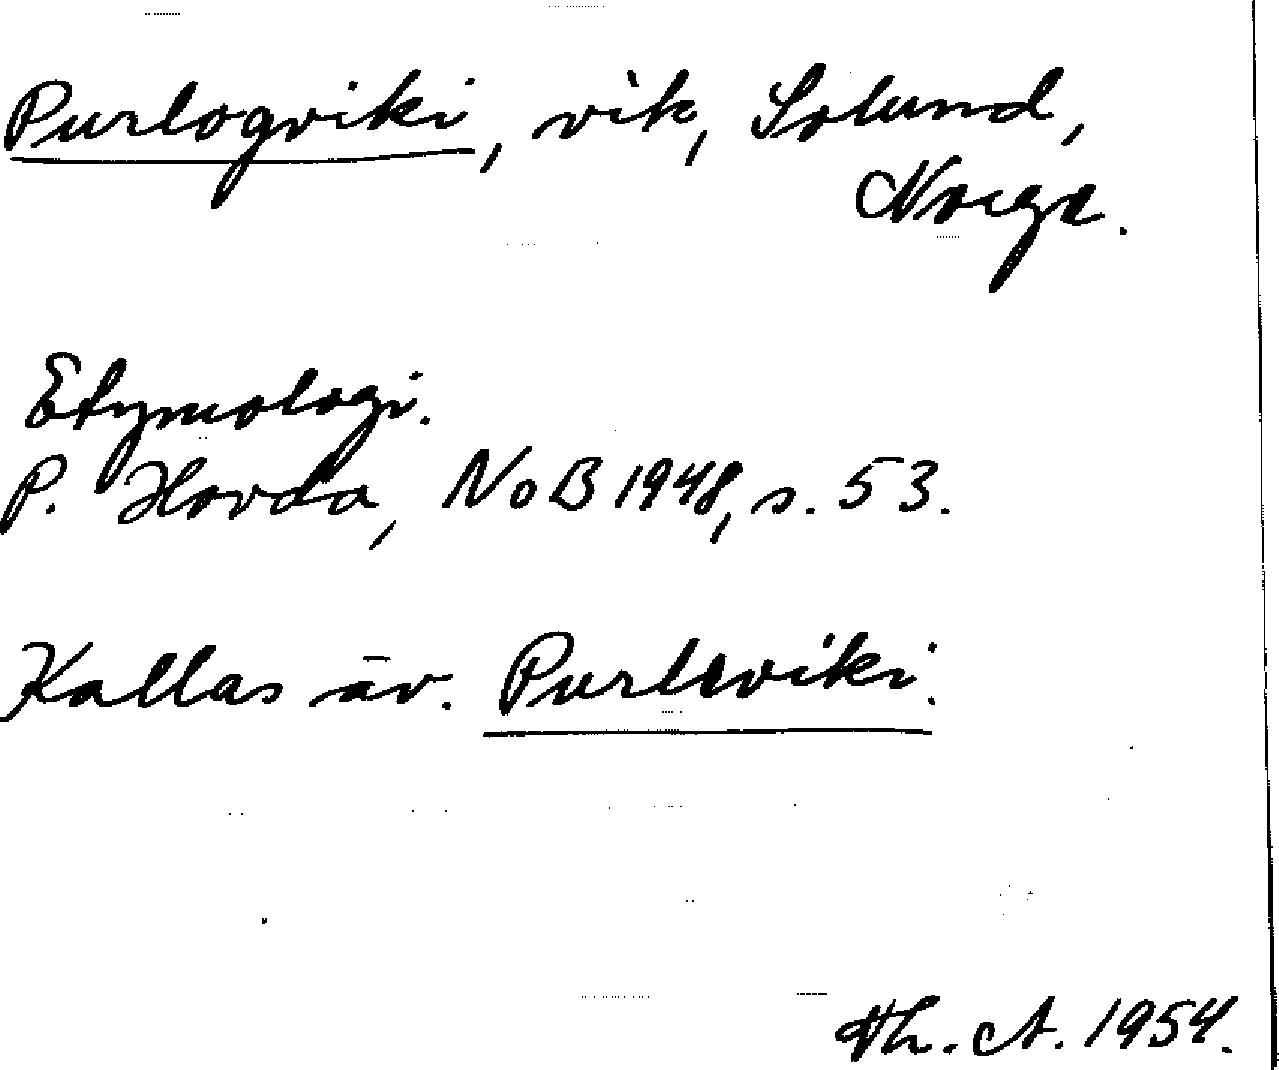 Purlogviki, vik, Solund,
Norge.
Etymologi.
P. Hovda, NoB 1948, s. 53.
Kallas äv. Purleviki.
Th. A. 1954.